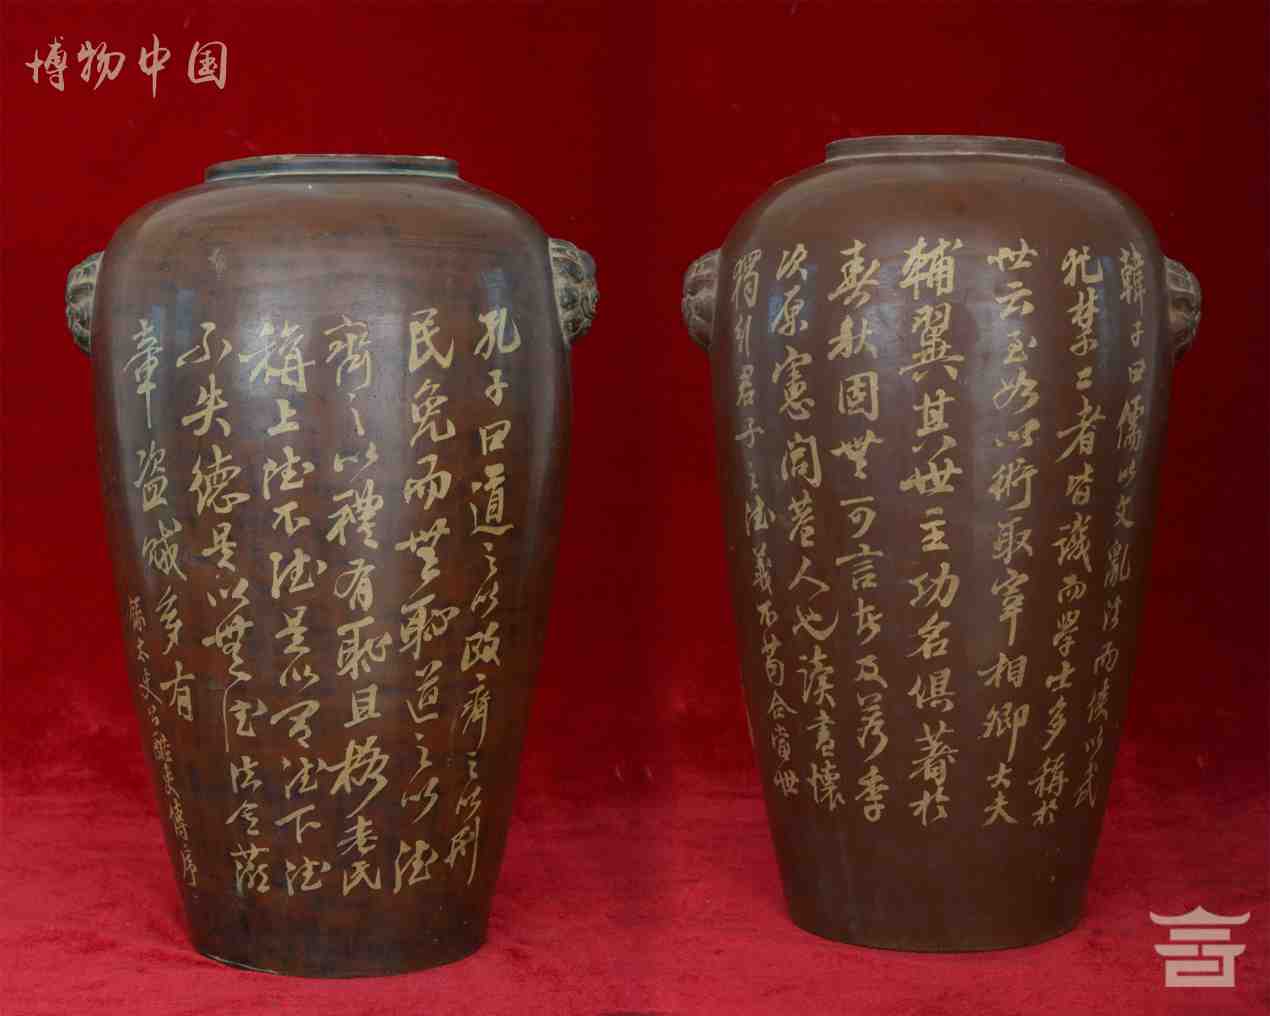 博物中国
孔子曰道之以政齊之以刑
民免而無恥道之以德
齊之以禮有恥且格老氏
稱上德不德是以有德下德
不失德是以無德法令滋
章盜賊多有
錄太史公酷吏傳序
韓子曰儒以文亂法而俠以武
犯禁二者皆譏而學士多稱於
世云至如以術取宰相卿大夫
輔翼其世主功名俱著於
春秋固無可言者及若季
次原憲閭巷人也讀書懷
獨行君子之德義不苟合當世